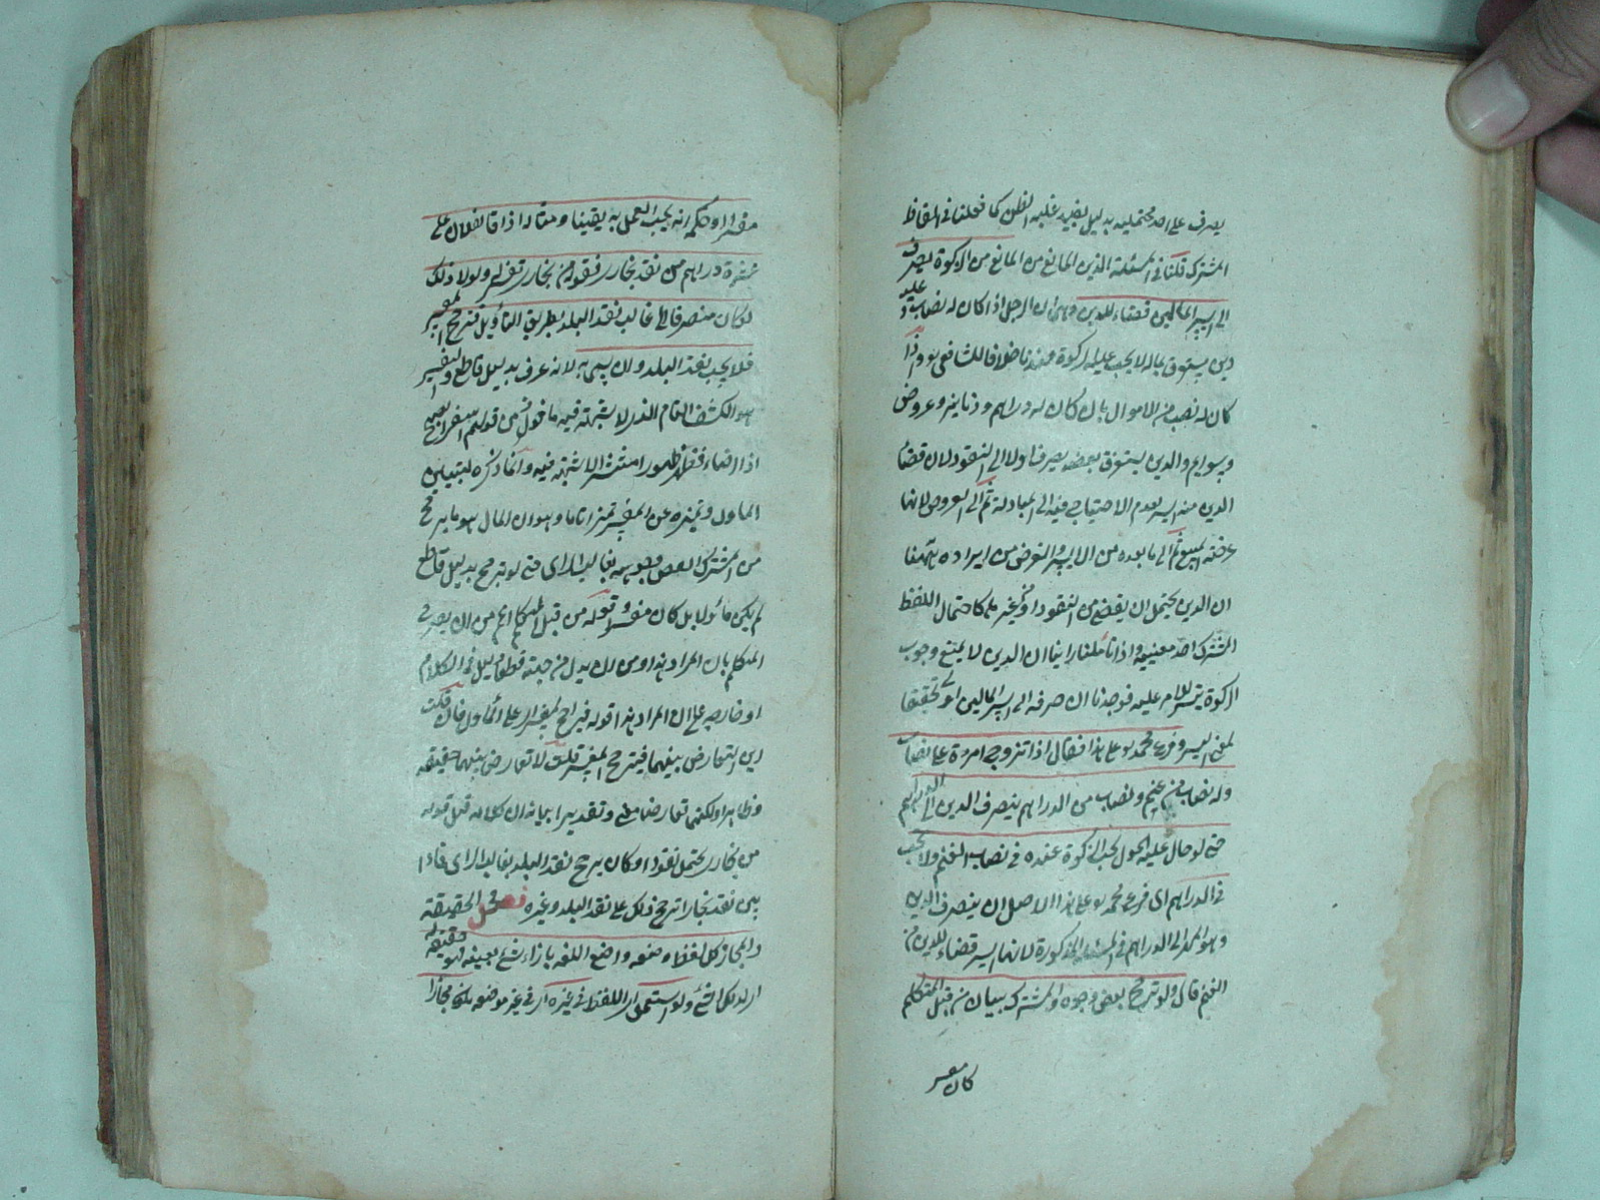 يصرف على احد محتمليه بدليل يفيد غلبة الظن كما فعلنا في الفاظ
المشترك قلنا في المسئلة الدين المانع من الزكوة يصرف
الى ايسر المالين قضاء للدين وهو ان الرجل اذا كان له نصاب و عليه
دين يستغرق ماله لا يجب عليه الزكوة عندنا خلافا للشافعي واذا
كان له نصب من الاموال بان كان له دراهم ودنانير وعروض
وسوايم والدين يستغرق بعضه يصرف اولا الى النقود لان قضاء
الدين منه ايسر لعدم الاحتياج فيه الى المبادلة ثم الى العروض لانها
عرضة للبيع ثم الى ما بعده من الايسر والغرض من ايراده ههنا
ان الدين يحتمل ان يقضى من النقود او من غيرها كاحتمال اللفظ
المشترك احد معنييه واذا تأملنا راينا ان الدين لا يمنع وجوب
الزكوة عليه فوجدنا ان صرفه الى ايسر المالين اولى تحقيقا
لمعنى اليسر وفرع محمد على هذا فقال اذا تزوج امرءة على نصاب
وله نصاب من غنم ونصاب من الدراهم ينصرف الدين الى الدراهم
حتى لو حال عليه الحول يجب الزكوة عنده في نصاب الغنم ولا يجب
في الدراهم اى فرع محمد على هذا الاصل ان ينصرف الدين
وهو المهر الى الدراهم في المسئلة المذكورة لانها ايسر قضاء للدين من
الغنم قال ولو ترجح بعض وجوه المشترك ببيان من قبل المتكلم
كان مفسر
مفسرا وحكمه انه يجب العمل به يقينا ومثاله اذا قال لفلان على
عشرة دراهم من نقد بخارا فقوله من نقد بخارا تفسير ولولا ذلك
لكان منصرفا الى غالب نقد البلد بطريق التأويل فيترجح المفسر
فلا يجب نقد البلد وان سمى به لانه عرف بدليل قاطع والتفسير
هو الكشف التام الذى لا شبهة فيه مأخوذ من قولهم اسفر الصبح
اذا اضاء فظهر ظهورا منتشرا لا شبهة فيه وانما ذكره ليتبين
الماول وتميزه عن المفسر تميزا تاما وهو ان الماول هو ما يرجح
من المشترك بعض وجوهه بغالب الراى حتى لو ترجح بدليل قاطع
لم يكن مأولا بل كان مفسرا قوله من قبل المتكلم اعم من ان يصرح
المتكلم بان المراد هذا ومن ان يدل من جهته قطعا دليل في الكلام
او خارجه على ان المراد هذا قوله فيرجح المفسر على الماول فان قلت
اين التعارض بينهما فيترجح المفسر قلت لا تعارض بينهما حقيقة
وظاهرا ولكنهما تعارضا معنى وتقديرا بيانه ان كلامه قبل قوله
من بخارا يحتمل نقودا وكان يرجح نقد البلد بغالب الراى فاذا
بين نقد بخارا ترجح ذلك على نقد البلد وغيره فصل في الحقيقة
والمجاز كل لفظ وضعه واضع اللغة بازاء شئ بعينه فهو حقيقة له
اى لذلك الشئ ولو استعمل اى اللفظ في غيره اى في غير موضعه يكون مجازا